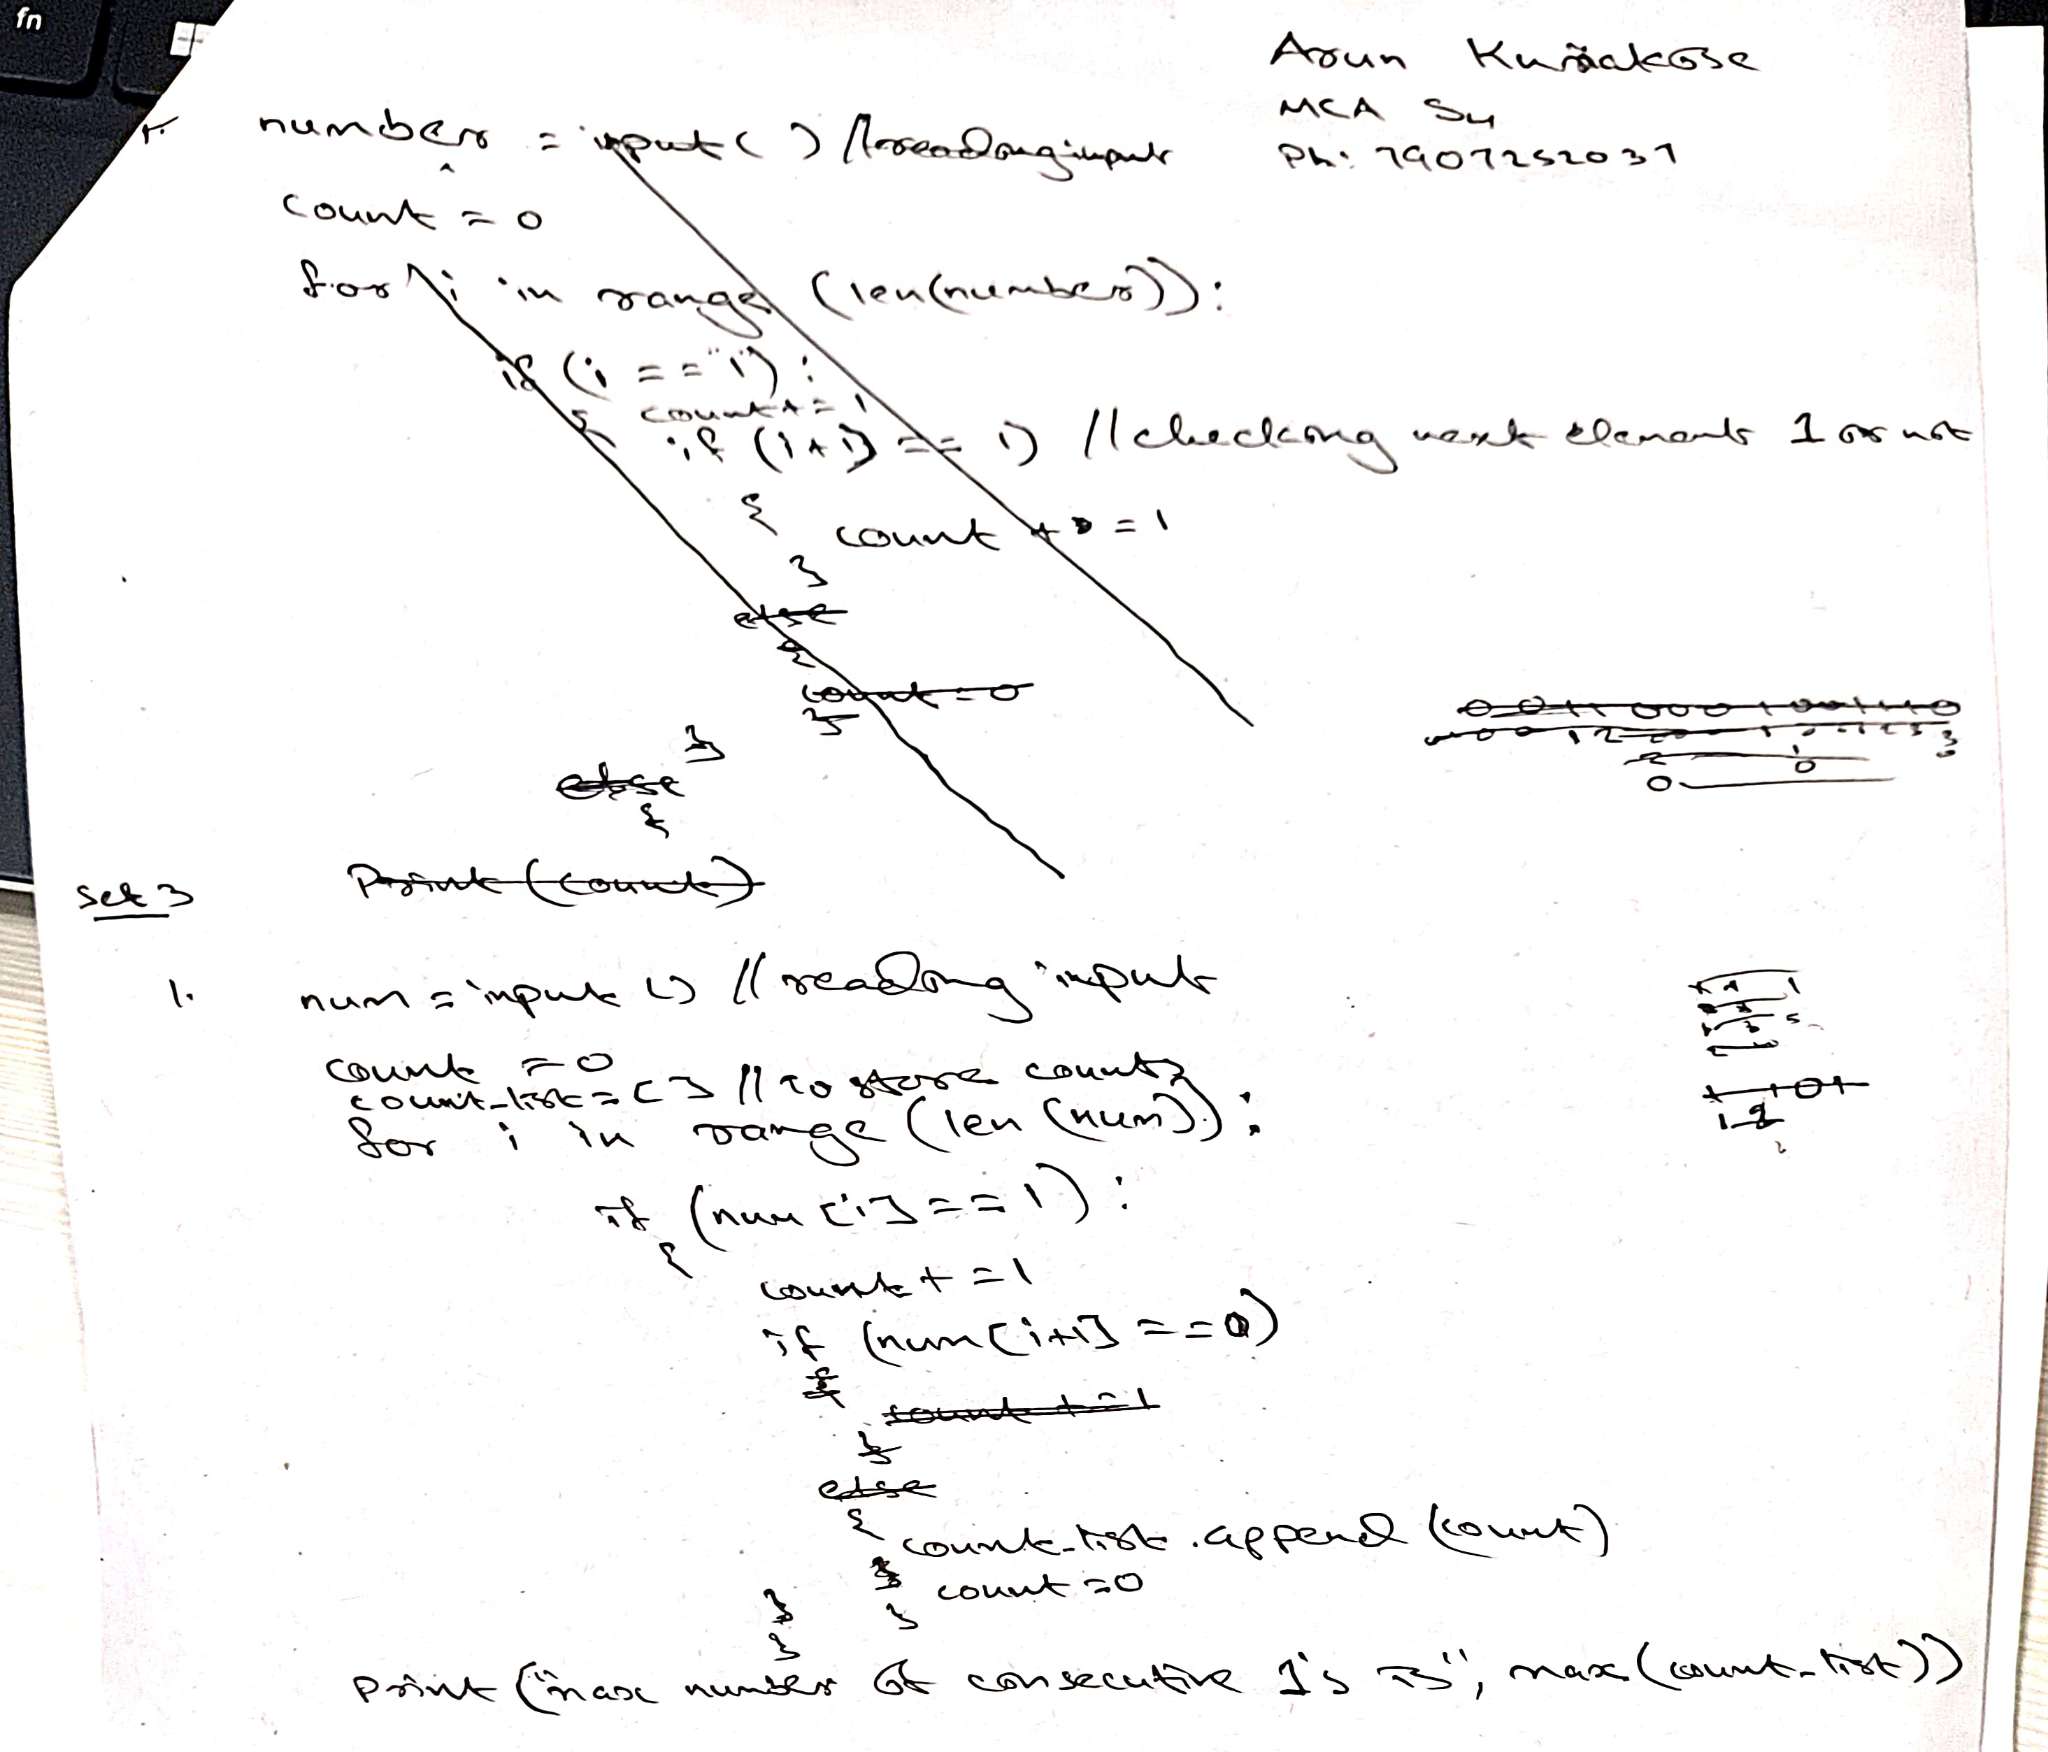 fn
Arun Kuriakose
MCA S4
Ph: 7907252037
1. number = input ( ) // reading input
count = 0
for i in range (len(number)):
if (i == "1") :
{ count += 1
if (i+1) == 1) // checking next elements 1 or not
{
count + = 1
}
else
{
count = 0
}
}
else
{
Print (count)
Set 3
1. num = input () // reading input
count = 0
count_list = [ ] // to store counts
for i in range (len (num)) :
if (num [i] == 1) :
{
count + = 1
if (num [i+1] == 0)
{
count + = 1
}
else
{
count_list .append (count)
} count = 0
} }
}
print ("max number of consecutive 1's is", max (count_list))